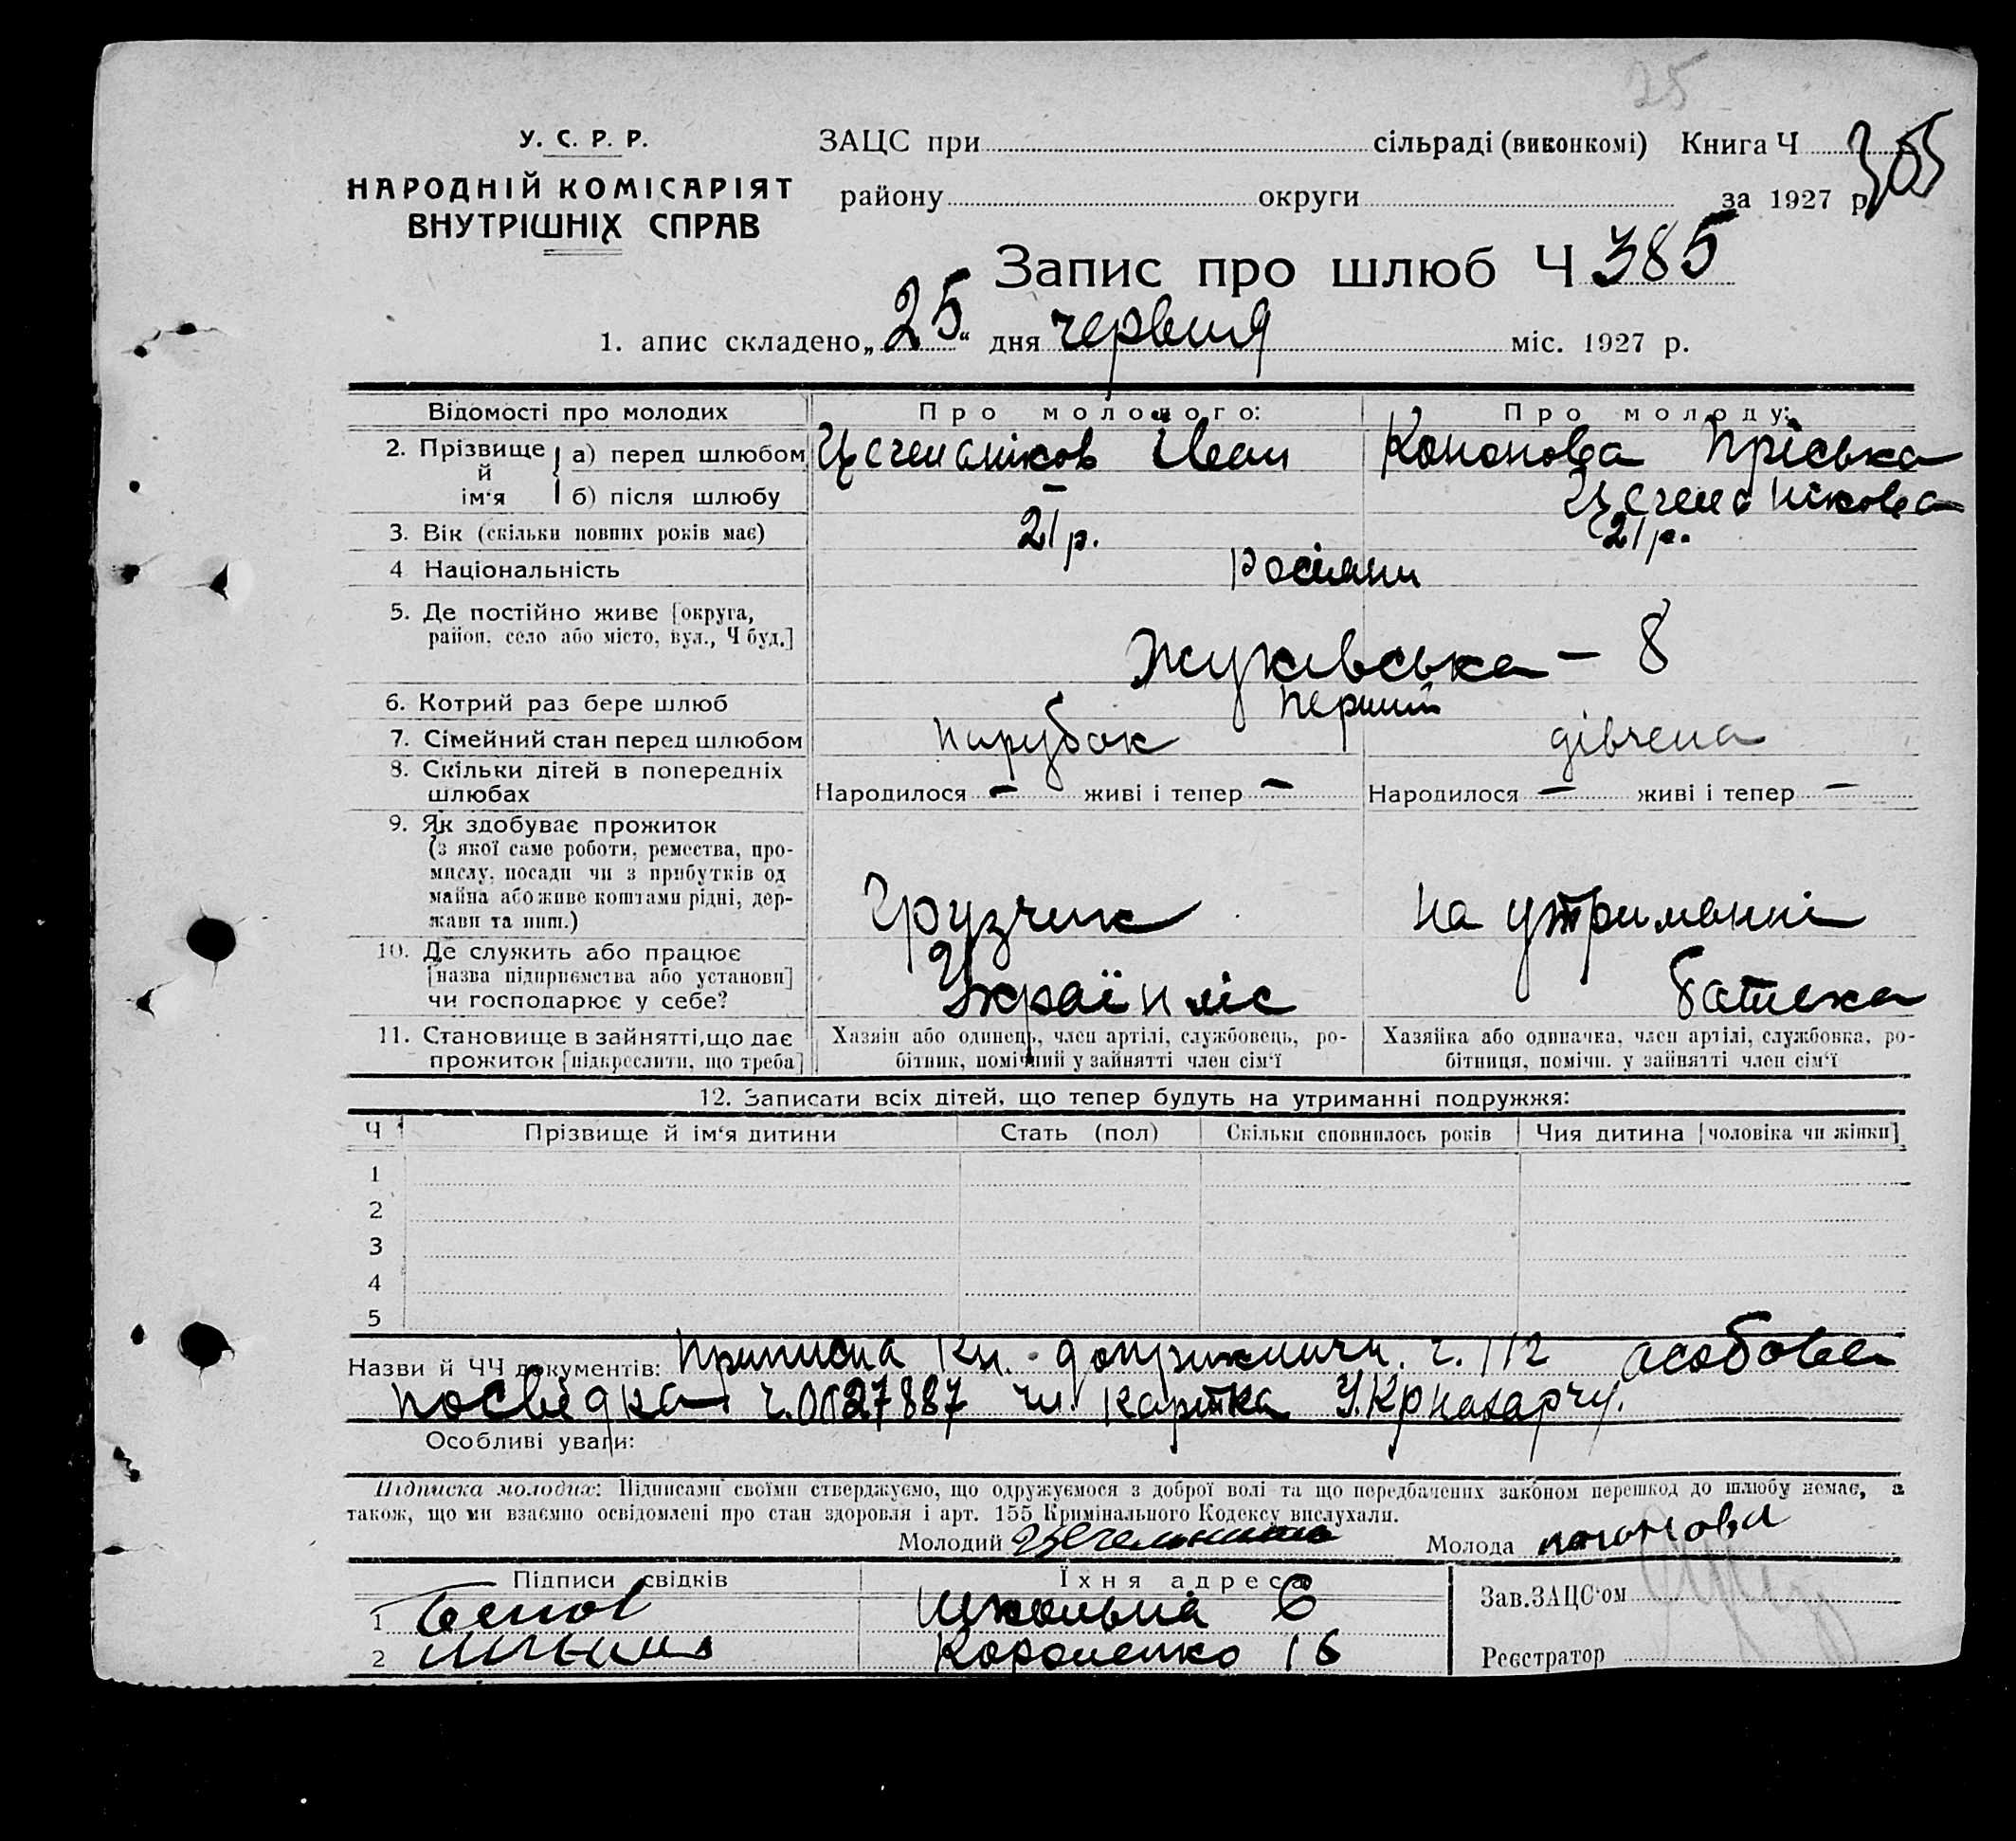 25
У. С. Р. Р.
НАРОДНІЙ КОМІСАРІЯТ
ВНУТРІШНІХ СПРАВ
ЗАЦС при сільраді (виконкомі) Книга Ч
району округи за 1927 р.
305
Запис про шлюб Ч 385
1. апис складено „25“ дня червня міс. 1927 р.
Відомості про молодих Про молодого: Про молоду:
2. Прізвище й ім‘я а) перед шлюбом Іван Кононова Пріська
б) після шлюбу –
3. Вік (скільки повних років має) 21 р. 21 р.
4 Національність росіяни
5. Де постійно живе [округа, район, село або місто, вул., Ч буд.] Жуківська – 8
6. Котрий раз бере шлюб перший
7. Сімейний стан перед шлюбом парубок дівчена
8. Скільки дітей в попередніх шлюбах Народилося – живі і тепер – Народилося – живі і тепер –
9. Як здобуває прожиток
(з якої саме роботи, ремества, про-
мислу, посади чи з прибутків од
майна або живе коштами рідні, дер-
жави та инш.) Грузчик на утриманні
10. Де служить або працює
[назва підприємства або установи]
чи господарює у себе? Українліс батька
11. Становище в зайнятті, що дає
прожиток [підкреслити, що треба]
Хазяїн або одинець, член артілі, службовець, ро-
бітник, помічний у зайнятті член сім‘ї
Хазяйка або одиначка, член артілі, службовка, ро-
бітниця, помічн. у зайнятті член сім‘ї
12. Записати всіх дітей, що тепер будуть на утриманні подружжя:
Ч Прізвище й ім‘я дитини Стать (пол) Скільки сповнилось років Чия дитина [чоловіка чи жінки]
1
2
3
4
5
Назви й ЧЧ документів: приписна кн. ч. 112 особова
посвідка чл. картка
Особливі уваги:
Підписка молодих: Підписами своїми стверджуємо, що одружуємося з доброї волі та що передбачених законом перешкод до шлюбу немає, а
також, що ми взаємно освідомлені про стан здоровля і арт. 155 Кримінального Кодексу вислухали.
Молодий Молода кононова
Підписи свідків Їхня адреса Зав. ЗАЦС‘ом
1 Школьна 6
2 Короленко 16 Реєстратор